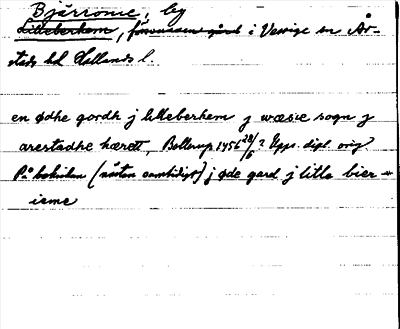 Bjärrome, by
Lilleberhem, försvunnen gård i Vessige sn År-
stads hd Hallands l.
en ødhe gordh j lilleberhem j wæsie sogn j
arestadhe hærett, Bollerup 1456 28/6? Upps. dipl. orig
På baksidan (nästan samtidigt) j øde gard j litle bier-
ieme